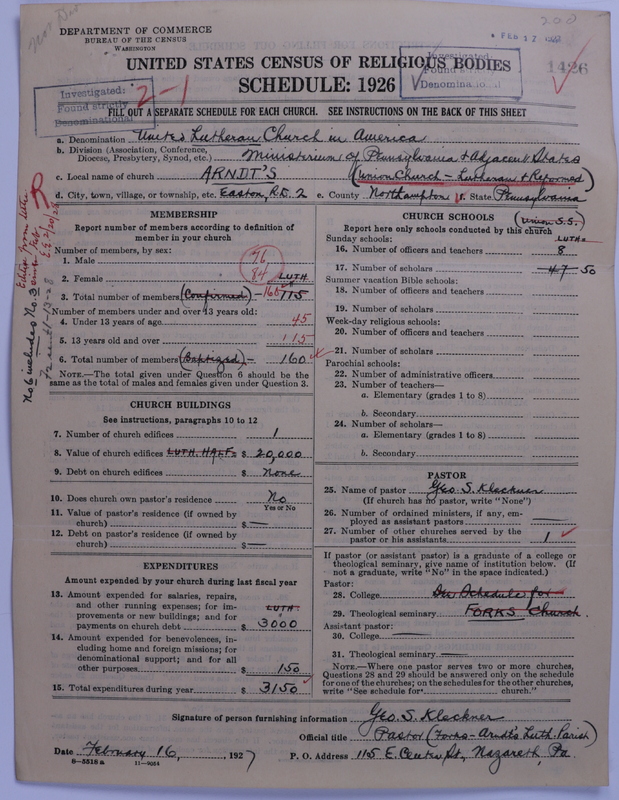 DEPARTMENT OF COMMERCE
BUREAU OF THE CENSUS
WASHINGTON
FEB 17
200
UNITED STATES CENSUS OF RELIGIOUS BODIES
SCHEDULE: 1926
Investigated:
Found strictly
Denominational
2-1
Investigated
Found
Denominational
1426
FILL OUT A SEPARATE SCHEDULE FOR EACH CHURCH. SEE INSTRUCTIONS ON THE BACK OF THIS SHEET
a. Denomination United Lutheran Church in America
b. Division (Association, Conference, Diocese, Presbytery, Synod, etc.) Ministerium of Pennsylvania & Adjacent States
c. Local name of church ARNDT'S (Union Church - Lutheran & Reformed)
d. City, town, village, or township, etc. Easton, R.D. 2 e. County Northampton f. State Pennsylvania
MEMBERSHIP
Report number of members according to definition of
member in your church
Number of members, by sex:
1. Male 76
2. Female 84 LUTH
3. Total number of members (Confirmed) - 160 115
Number of members under and over 13 years old:
4. Under 13 years of age 45
5. 13 years old and over 115
6. Total number of members (Baptized) - 160
NOTE.—The total given under Question 6 should be the
same as the total of males and females given under Question 3.
No 6 includes No. 3
CHURCH BUILDINGS
See instructions, paragraphs 10 to 12
7. Number of church edifices 1
8. Value of church edifices LUTH. HALF. $ 20,000
9. Debt on church edifices $ None
10. Does church own pastor's residence No
Yes or No
11. Value of pastor's residence (if owned by
church) $ —
12. Debt on pastor's residence (if owned by
church) $ —
EXPENDITURES
Amount expended by your church during last fiscal year
13. Amount expended for salaries, repairs,
and other running expenses; for im-
provements or new buildings; and for LUTH.
payments on church debt $ 3000
14. Amount expended for benevolences, in-
cluding home and foreign missions; for
denominational support; and for all
other purposes $ 150
15. Total expenditures during year $ 3150
CHURCH SCHOOLS (Union S.S.)
Report here only schools conducted by this church
Sunday schools: LUTH-
16. Number of officers and teachers 8
17. Number of scholars 47 50
Summer vacation Bible schools:
18. Number of officers and teachers
19. Number of scholars
Week-day religious schools:
20. Number of officers and teachers
21. Number of scholars
Parochial schools:
22. Number of administrative officers
23. Number of teachers—
a. Elementary (grades 1 to 8)
b. Secondary
24. Number of scholars—
a. Elementary (grades 1 to 8)
b. Secondary
PASTOR
25. Name of pastor Geo. S. Kleckner
(If church has no pastor, write "None")
26. Number of ordained ministers, if any, em-
ployed as assistant pastors —
27. Number of other churches served by the
pastor or his assistants 1
If pastor (or assistant pastor) is a graduate of a college or
theological seminary, give name of institution below. (If
not a graduate, write "No" in the space indicated.)
Pastor:
28. College See Schedule for
29. Theological seminary FORKS Church.
Assistant pastor:
30. College —
31. Theological seminary —
NOTE.—Where one pastor serves two or more churches,
Questions 28 and 29 should be answered only on the schedule
for one of the churches; on the schedules for the other churches,
write "See schedule for church."
Signature of person furnishing information Geo. S. Kleckner
Official title Pastor (Forks-Arndt's Luth. Parish)
Date February 16, 1927
P. O. Address 115 E. Center St., Nazareth, Pa.
8-5518 a 11-9024